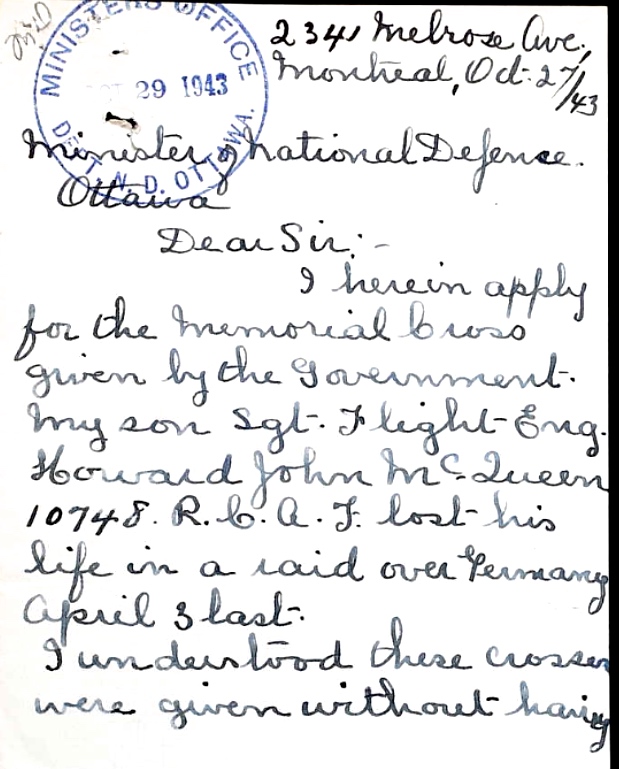 MINISTERS OFFICE
29 1943
DEPT. N. D. OTTAWA.
2341 Melrose Ave.,
Montreal, Oct. 27/43
Minister of National Defence.
Ottawa
Dear Sir:-
I herein apply
for the Memorial Cross
given by the Government.
My son Sgt. Flight Eng.
Howard John McQueen
10748. R.C.A.F. lost his
life in a raid over Germany
April 3 last.
I understood these crosses
were given without having